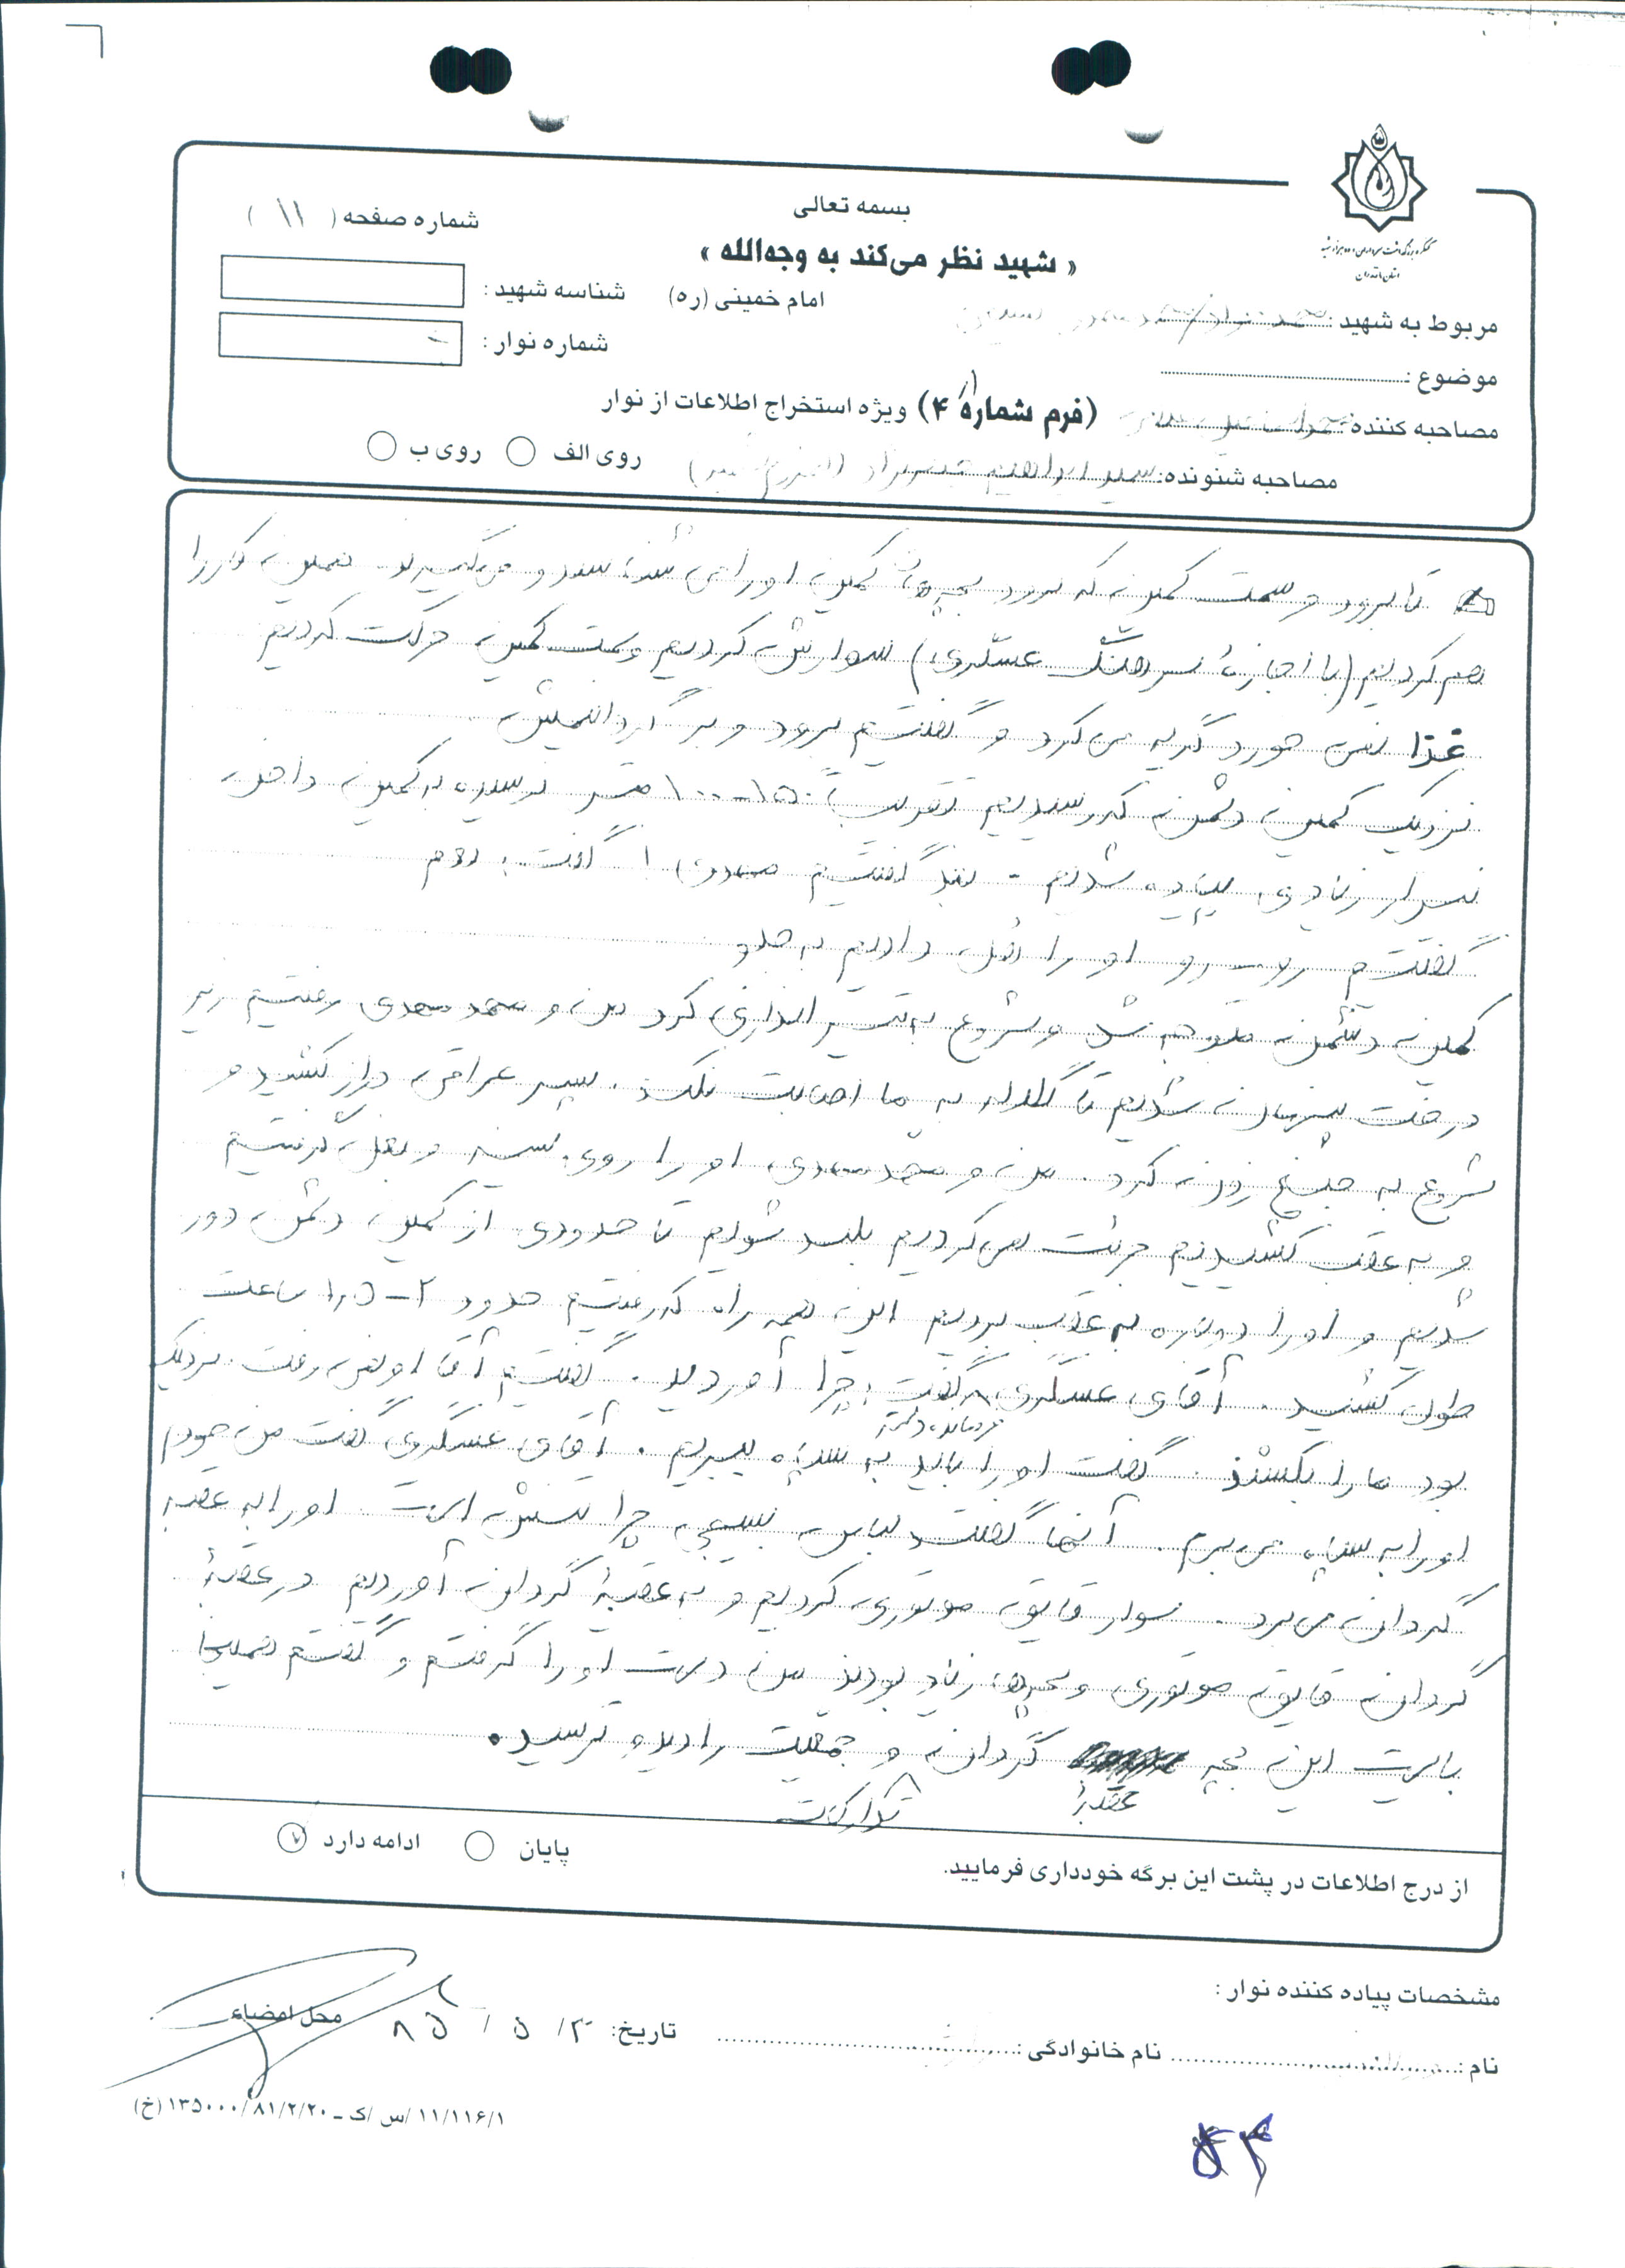 بسمه تعالی
« شهید نظر می‌کند به وجه‌الله »
امام خمینی (ره)
شماره صفحه ( ۱۱ )
شناسه شهید :
شماره نوار :
مربوط به شهید :
موضوع :
مصاحبه کننده :
(فرم شماره ۴) ویژه استخراج اطلاعات از نوار
مصاحبه شنونده: سید ابراهیم
روی الف روی ب
تا برود و سمت کمین که برود بچه‌های کمین او را می‌شناسند و می‌گیرند. همین کار را
هم کردیم (با اجازهٔ سرهنگ عسگری) سوارش کردیم و سمت کمین حرکت کردیم
غذا نمی‌خورد گریه می‌کرد و گفتیم برود و برگردانیمش
نزدیک کمین دشمن که رسیدیم تقریباً ۱۵۰-۱۰۰ متر نرسیده به کمین داخل
نیزار زیادی پیاده شدیم - گفتیم مهدی! گفت: بروم
گفتم برو او را هل دادیم به جلو
کمین دشمن متوجه شد و شروع به تیراندازی کرد من و محمد مهدی رفتیم زیر
درخت پنهان شدیم تا گلوله به ما اصابت نکند. پسر عراقی دراز کشید و
شروع به جیغ زدن کرد. من و محمد مهدی او را روی سینه و بغل گرفتیم
و به عقب کشیدیم جرئت نمی‌کردیم بلند شویم تا حدودی از کمین دشمن دور
شدیم و او را دوباره به عقب بردیم این همه راه که رفتیم حدود ۲-۱٫۵ ساعت
طول کشید. آقای عسگری گفت: چرا آوردید. گفتیم آقا او نمی‌رفت. نزدیک
بود ما را بکشند. گفت او را باید به سپاه ببریم. آقای عسگری گفت من خودم
او را به سپاه می‌برم. آنها گفتند لباس بسیجی چرا تنش است. او را به عقبه
گردان می‌برد. سوار قایق موتوری کردیم و به عقبهٔ گردان آوردیم در عقبهٔ
گردان قایق موتوری و بچه‌ها زیاد بودند من دست او را گرفتم و گفتم همینجا
بایست این بچه عقبهٔ تدارکات گردان و جمعیت را دید ترسید.
از درج اطلاعات در پشت این برگه خودداری فرمایید.
پایان ادامه دارد
مشخصات پیاده کننده نوار :
نام : نام خانوادگی : تاریخ: ۲ / ۵ / ۸۵ محل امضاء
۱۱/۱۱۶/۱ /س /ک ـ ۱۳۵۰۰۰/۸۱/۲/۲۰ (خ)